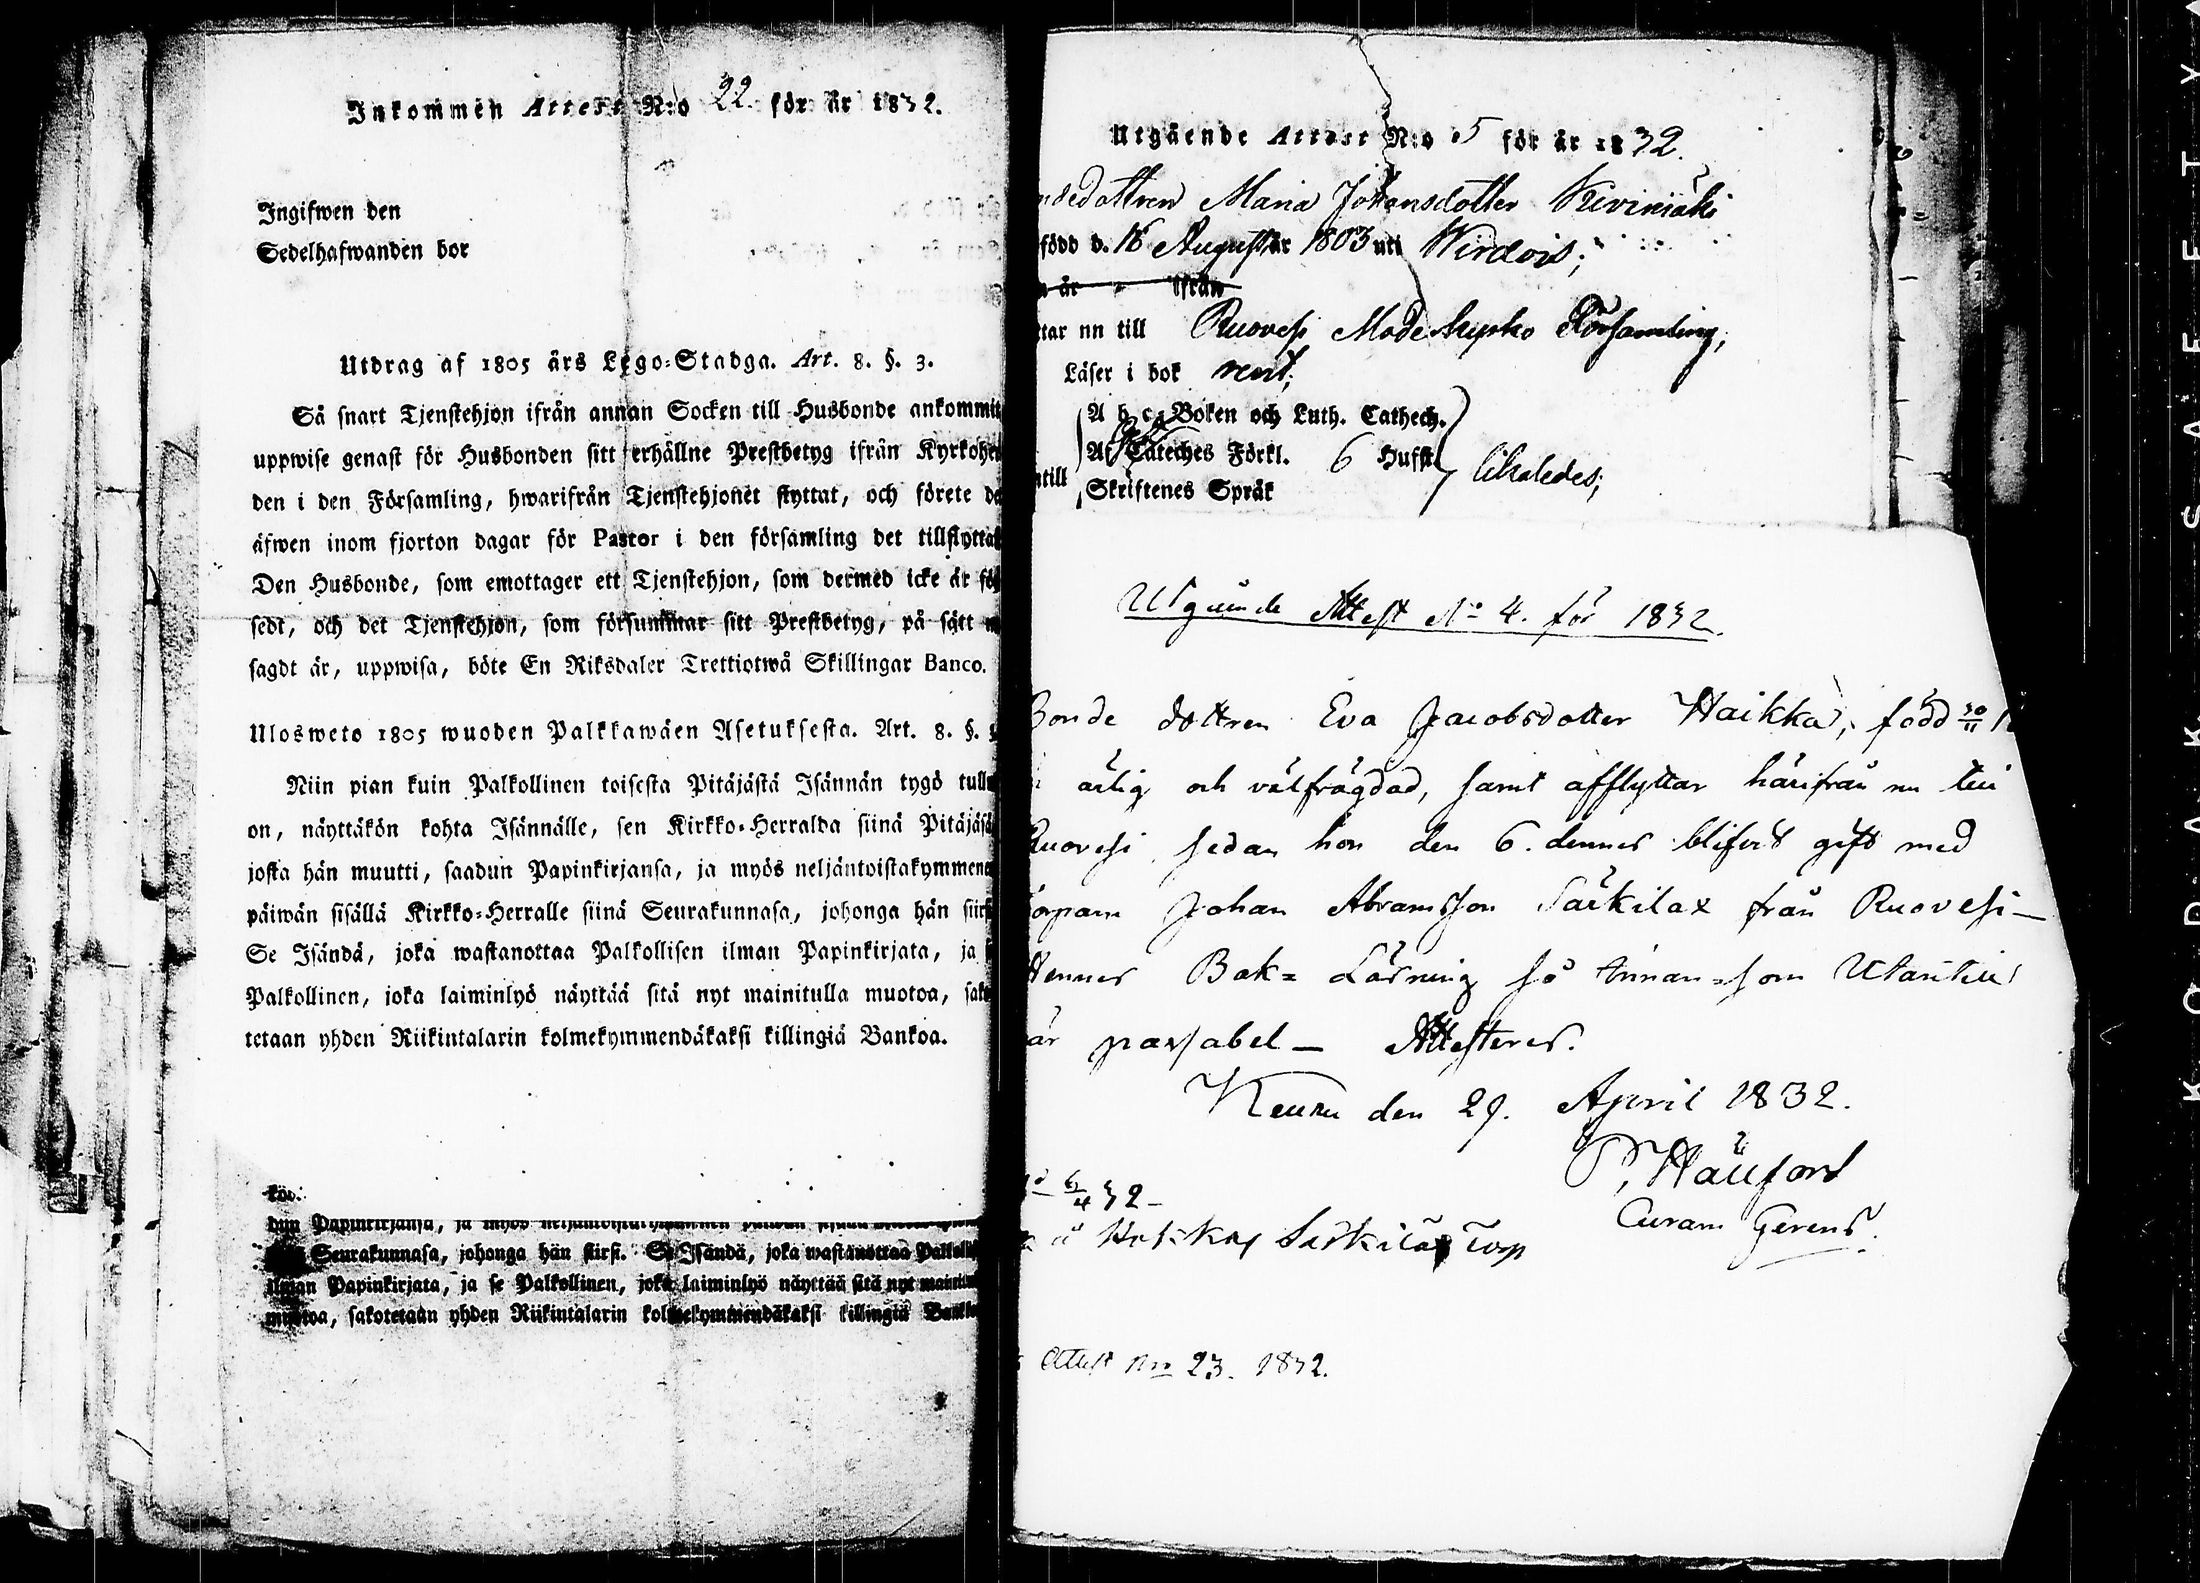 Inkommen Attest N:o 22. för år 1832.
Ingifwen den
Sedelhafwanden bor
Utdrag af 1805 års Lego-Stadga. Art. 8. §. 3.
Så snart Tjenstehjon ifrån annan Socken till Husbonde ankommit
uppwise genast för Husbonden sitt erhållne Prestbetyg ifrån Kyrkohe
den i den Församling, hwarifrån Tjenstehjonet flyttat, och förete de
äfwen inom fjorton dagar för Pastor i den församling det tillflyttat
Den Husbonde, som emottager ett Tjenstehjon, som dermed icke är fö
sedt, och det Tjenstehjon, som försummar sitt Prestbetyg, på sätt
sagdt är, uppwisa, böte En Riksdaler Trettiotwå Skillingar Banco.
Ulosweto 1805 wuoden Palkkawäen Asetuksesta. Art. 8. §.
Niin pian kuin Palkollinen toisesta Pitäjästä Isännän tygö tullu
on, näyttäkön kohta Isännälle, sen Kirkko-Herralda siinä Pitäjäsä
josta hän muutti, saadun Papinkirjansa, ja myös neljäntoistakymmene
päiwän sisällä Kirkko-Herralle siinä Seurakunnasa, johonga hän siirs
Se Isändä, joka wastanottaa Palkollisen ilman Papinkirjata, ja s
Palkollinen, joka laiminlyö näyttää sitä nyt mainitulla muotoa, sako
tetaan yhden Riikintalarin kolmekymmendäkaksi killingiä Bankoa.
köö.
dun Papinkirjansa, ja myös
Seurakunnasa, johonga hän siirsi. Se Isändä, joka wastanottaa Palkolli
ilman Papinkirjata, ja se Palkollinen, joka laiminlyö näyttää sitä nyt mainitu
muotoa, sakotetaan yhden Riikintalarin kolmekymmendäkaksi killingiä Banko
Utgående Attest N:o 5 för år 1832.
ndedottren Maria Johansdotter Kivimäki
född d. 16 August år 1803 uti Wirdois;
år ifrån
ttar nu till Ruovesi Moderkyrko Församling,
Läser i bok rent;
A b c-Boken och Luth. Cathech.
Af Cateches Förkl. 6 Hufst.
ntill Skriftenes Språk likaledes;
Utgående Attest No 4. för 1832.
Bonde dottren Eva Jacobsdotter Haikka, född 30/11 1
ärlig och välfrägdad, samt afflyttar härifrån nu till
Ruovesi sedan hon den 6. dennes blifvit gift med
Torparn Johan Abramsson Särkilax från Ruovesi —
Hennes Bok= Läsning så Innan=som Utantill
är passabel — Attesteres.
Keuru den 29. April 1832.
P. Hällfors
Curam Gerens.
6/4 32 —
Särkilax Torp
Attest No 23. 1832.
K O R D A K S A F E T Y